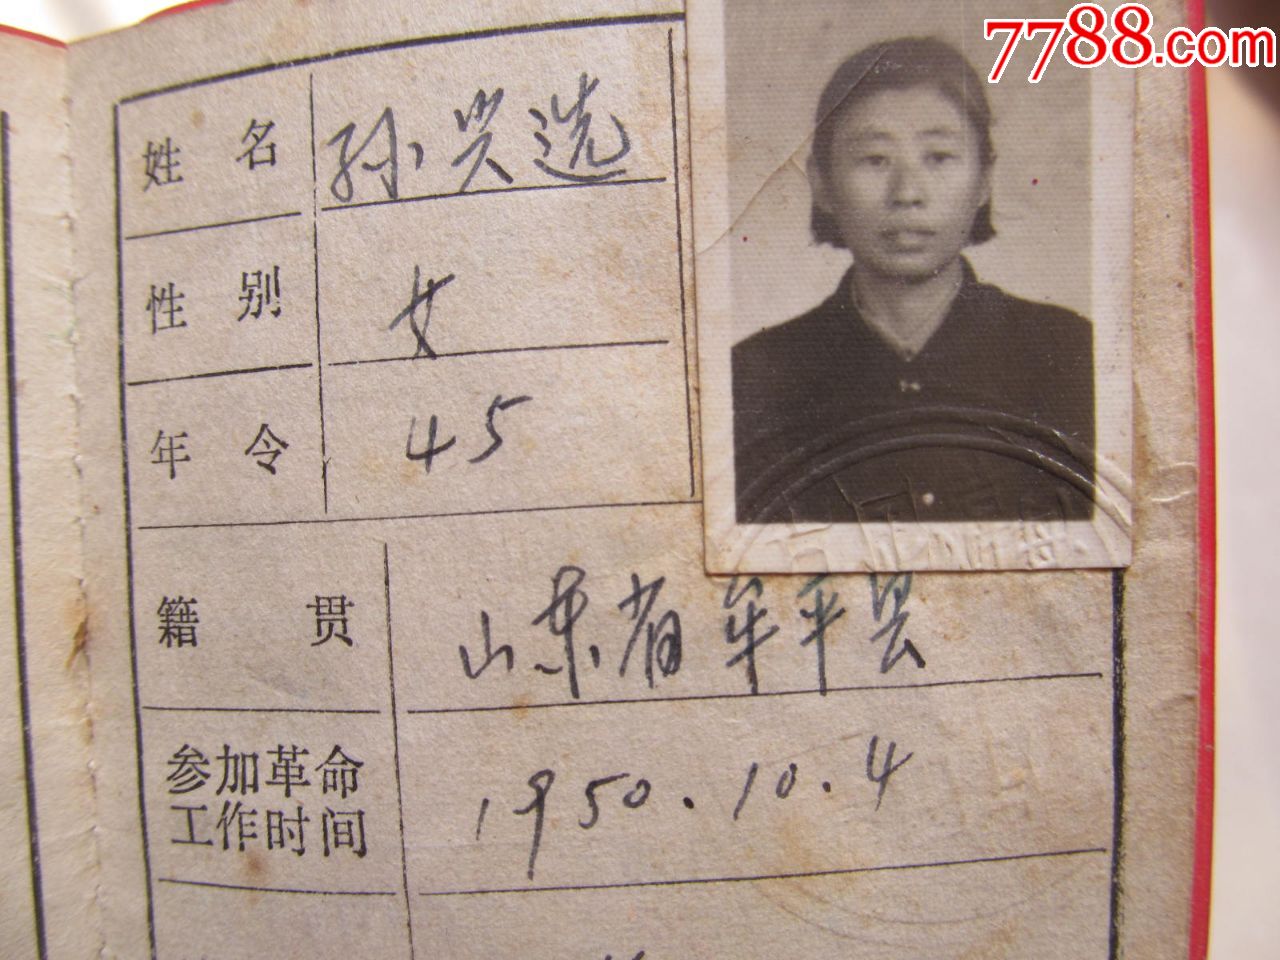 7788.com
姓名 孙兴选
性别 女
年令 45
籍贯 山东省牟平县
参加革命 1950.10.4
工作时间